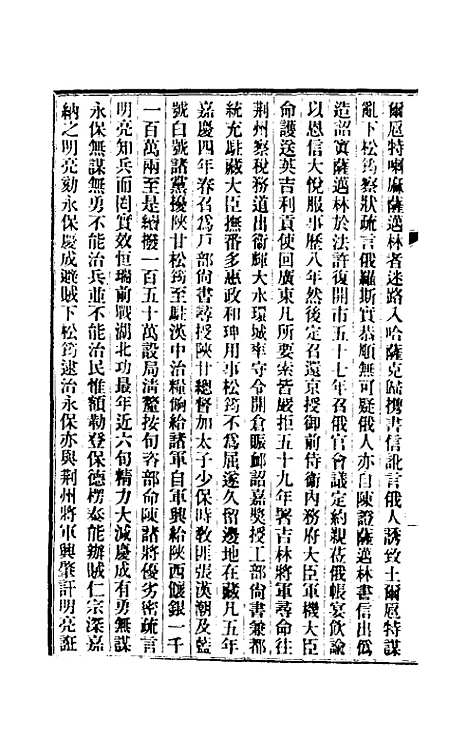 爾扈特喇嘛薩邁林者迷路入哈薩克歸攜書信訛言俄人誘致土爾扈特謀
亂下松筠察狀疏言俄羅斯實恭順無可疑俄人亦自陳證薩邁林書信出僞
造詔寘薩邁林於法許復開市五十七年召俄官會議定約親莅俄帳宴飲諭
以恩信大悅服事歷八年然後定召還京授御前侍衞內務府大臣軍機大臣
命護送英吉利貢使回廣東凡所要索皆嚴拒五十九年署吉林將軍尋命往
荆州察稅務道出衞輝大水環城率守令開倉賑卹詔嘉獎授工部尚書兼都
統充駐藏大臣撫番多惠政和珅用事松筠不爲屈遂久留邊地在藏凡五年
嘉慶四年春召爲戶部尚書尋授陝甘總督加太子少保時教匪張漢潮及藍
號白號諸黨擾陝甘松筠至駐漢中治糧餉給諸軍自軍興給陝西餉銀一千
一百萬兩至是續撥一百五十萬設局清釐按旬咨部命陳諸將優劣密疏言
明亮知兵而罔實效恒瑞前戰湖北功最年近六旬精力大減慶成有勇無謀
永保無謀無勇不能治兵並不能治民惟額勒登保德楞泰能辦賊仁宗深嘉
納之明亮劾永保慶成避賊下松筠逮治永保亦與荆州將軍興肇訐明亮誑